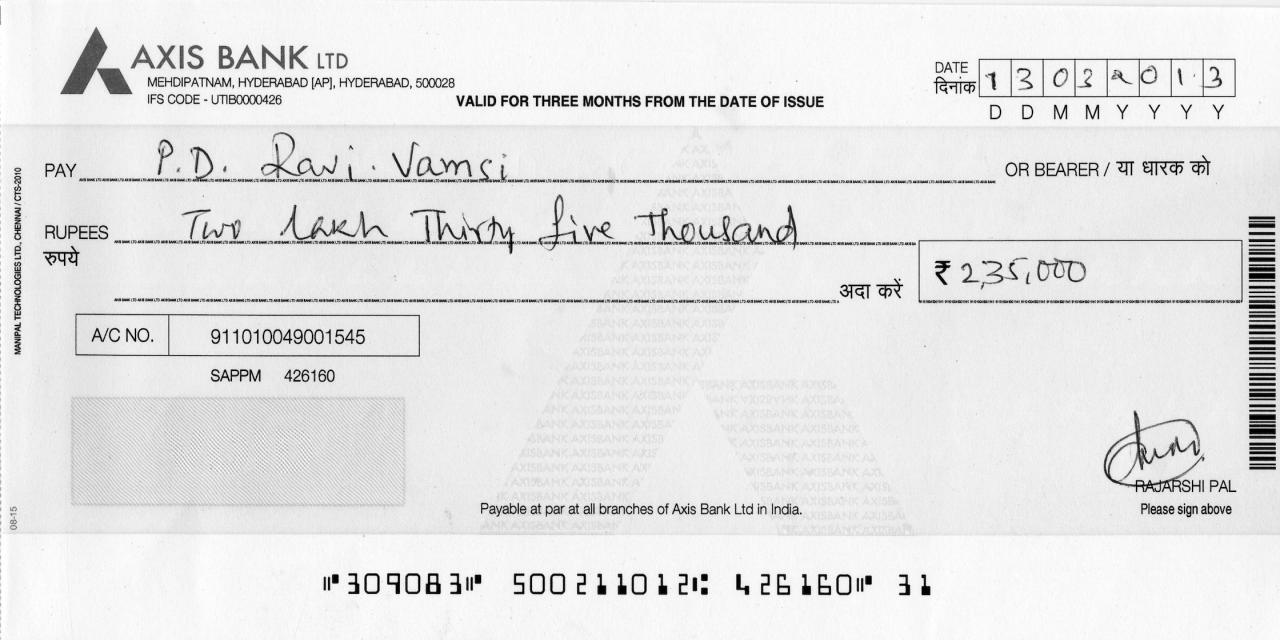 AXIS BANK LTD
MEHDIPATNAM, HYDERABAD [AP], HYDERABAD, 500028
IFS CODE - UTIB0000426
VALID FOR THREE MONTHS FROM THE DATE OF ISSUE
DATE
दिनांक 13032013
D D M M Y Y Y Y
PAY P.D. Ravi. Vamsi OR BEARER / या धारक को
RUPEES Two lakh Thirty five Thousand
रुपये
अदा करें ₹ 2,35,000
A/C NO. 911010049001545
SAPPM 426160
RAJARSHI PAL
Please sign above
Payable at par at all branches of Axis Bank Ltd in India.
MANIPAL TECHNOLOGIES LTD, CHENNAI / CTS-2010
08-15
⑈309083⑈ 500211012⑆ 426160⑈ 31